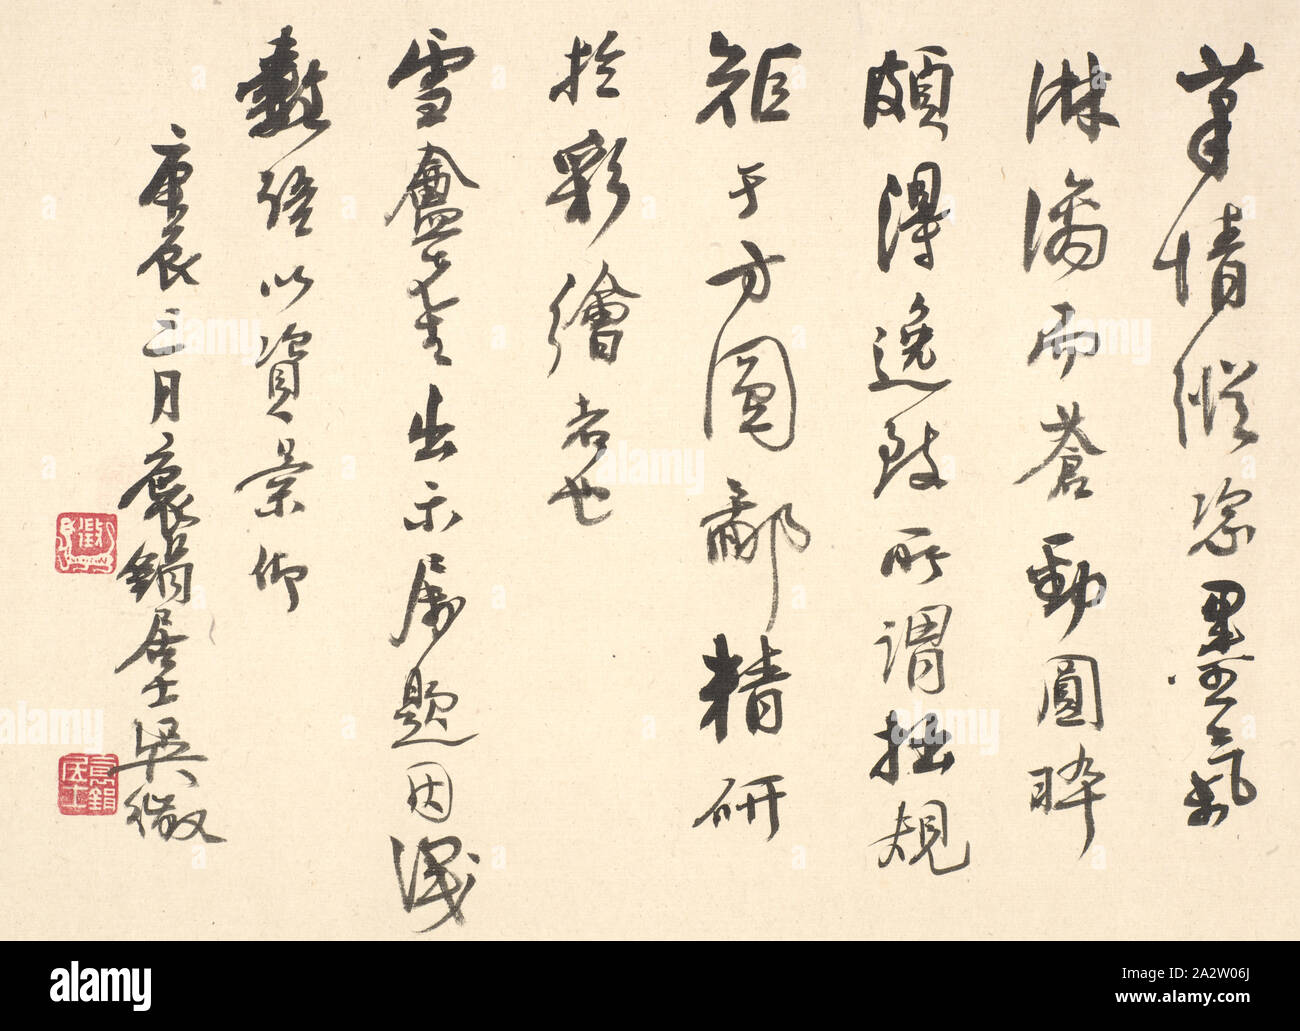 筆情縱恣墨氣
淋漓而蒼勁圓晬
頗得逸致所謂拙規
矩于方圓鄙精研
於彩繪者也
雪盦先生出示屬題因識
數語以資景仰
庚辰三月褱鋗居士吳徵
alamy
Image ID: 2A2W06J
www.alamy.com